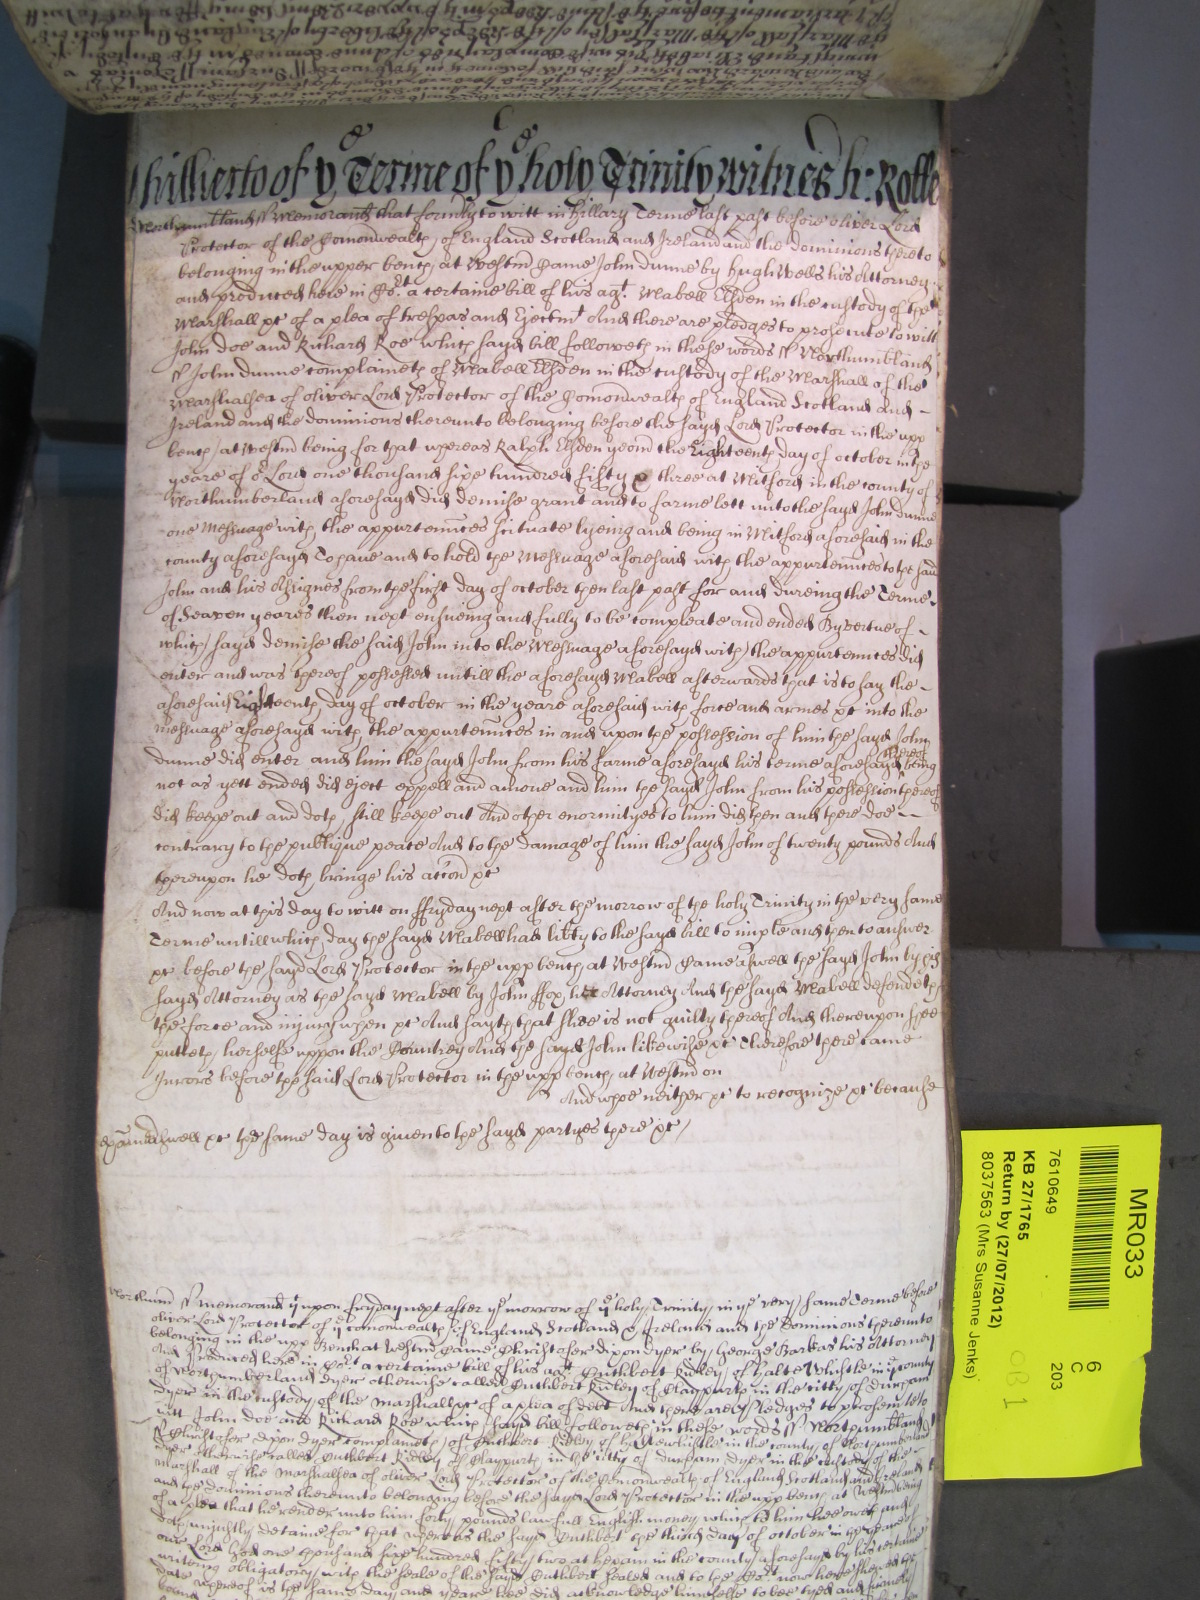 hillierto of ye Terme of ye holy Trinity witnes H: Rolle
Northumbland ss Memorand that formly to witt in Hillary Terme last past before Oliver Lord
Protector of the Comonwealth of England Scotland and Ireland and the dominions thereto
belonging in the upper bench at Westm Came John dunne by Hugh Wells his Attorney
and produced here in Cort a certaine bill of his agt Mabell Elsden in the custody of the
Marshall &c of a plea of trespas and Ejectmt And there are pledges to prosecute to witt
John doe and Richard Roe which sayd bill followeth in these words ss Northumbland
ss John dunne complaineth of Mabell Elsden in the custody of the Marshall of the
Marshalsea of Oliver Lord Protector of the Comonwealth of England Scotland and
Ireland and the dominions thereunto belonging before the sayd Lord Protector in the upp
bench at Westm being for that whereas Ralph Elsden yeom the Eighteenth day of October in the
yeare of or Lord one thousand sixe hundred fifty & three at Mitford in the county of
Northumberland aforesayd did demise grant and to farme lett unto the sayd John dunne
one Messuage with the appurtennces scituate lyeing and being in Mitford aforesaid in the
county aforesayd To have and to hold the Messuage aforesaid with the appurtennces to the said
John and his Assignes from the first day of October then last past for and dureing the Terme
of Seaven yeares then next ensueing and fully to be compleate and ended By vertue of
which sayd demise the said John into the Messuage aforesayd with the appurtennces did
enter and was thereof possessed untill the aforesayd Mabell afterwards that is to say the
aforesaid Eighteenth day of October in the yeare aforesaid with force and armes &c into the
messuage aforesayd with the appurtennces in and upon the possession of him the sayd John
dunne did enter and him the sayd John from his farme aforesayd his terme aforesayd thereof being
not as yett ended did eject expell and amove and him the sayd John from his possession thereof
did keepe out and doth still keepe out And other enormityes to him did then and there doe
contrary to the publique peace And to the damage of him the sayd John of twenty pounds And
thereupon he doth bringe his accon &c
And now at this day to witt on ffryday next after the morrow of the holy Trinity in the very same
Terme untill which day the sayd Mabell had libty to the sayd bill to imple and then to answer
&c before the sayd Lord Protector in the upp bench at Westm Came aswell the sayd John by his
sayd Attorney as the sayd Mabell by John ffox her Attorney And the sayd Mabell defendeth
the force and injury when &c And sayth that shee is not guilty thereof And thereupon shee
putteth herselfe uppon the Countrey And the sayd John likewise &c Therefore there came
Jurors before the said Lord Protector in the upp bench at Westm on
And whoe neither &c to recognize &c because
aswell &c the same day is given to the sayd partyes there &c
Northumb ss Memorand yt upon fryday next after ye morrow of ye holy Trinity in ye very same Terme before
Oliver Lord Protector of ye Comonwealth of England Scotland & Ireland and the dominions thereunto
belonging in the upp Bench at Westm Came Christofer dixon dyer by George Barkas his Attorney
And produced here in Cort a certaine bill of his agt Cuthbert Ridley of Haltewhistle in ye county
of Northumberland dyer otherwise called Cuthbert Ridley of Claypurth in the citty of durham
dyer in the custody of the Marshall &c of a plea of debt And there are Pledges to prosecute to
witt John doe and Richard Roe which sayd bill followeth in these words ss Northumbland
ss Christofer dixon dyer complaineth of Cuthbert Ridley of in the county of Northumberland
dyer otherwise called Cuthbert Ridley of Claypurth in the citty of durham dyer in the custody of the
Marshall of the Marshalsea of Oliver Lord Protector of the Comonwealth of England Scotland and Ireland
and the dominions thereunto belonging before the sayd Lord Protector in the upp bench at Westm being
of a plea that he render unto him forty pounds lawfull English money which to him hee oweth and
doth unjustly detaine for that whereas the sayd Cuthbert the third day of October in the yeare of
our Lord God one thousand sixe hundred fifty two at hexam in the county aforesayd by his certaine
writing obligatory with the seale of the sayd Cuthbert sealed and to the Cort now here shewed the
date whereof is the same day and yeare hee did acknowledge himselfe to bee tyed and firmely
MR033
7610649
KB 27/1765
Return by (27/07/2012)
8037563 (Mrs Susanne Jenks)
6
C
203
OB1